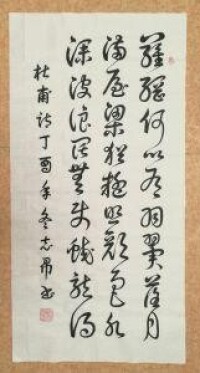 羅網何以有羽翼落月
滿屋梁猶疑照顏色水
深波浪闊無使蛟龍得
杜甫詩丁酉年冬志昂书